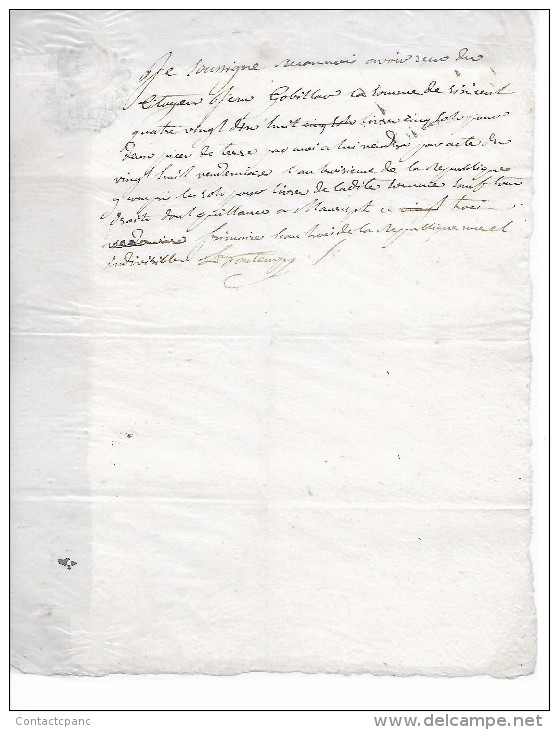 Je soussigné reconnais avoir reçu du
Citoyen Jean Gobillau la somme de six cent
quatre vingt dix huit cinq sols livres cinq sols pour
une pièce de terre par moi a lui vendue par acte du
vingt huit vendemiaire l'an troisieme de la Republique
les sols pour livres de ladite somme sauf tous
droits dont quittance a ce trois
frimaire l'an trois de la Republique une et
indivisible
Contactcpanc
www.delcampe.net